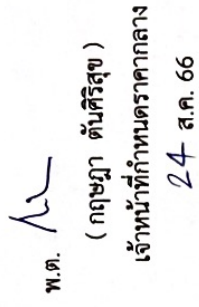 พ.ต.
( กฤษฎา ตันศิริสุข )
เจ้าหน้าที่กำหนดราคากลาง
24 ส.ค. 66